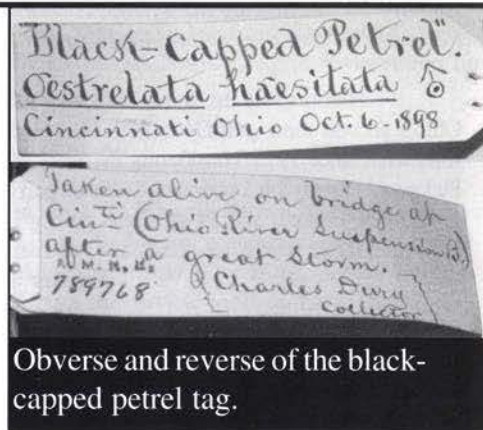 "Black-Capped Petrel".
Oestrelata haesitata ♂
Cincinnati Ohio Oct. 6-1898
Taken alive on bridge at
Cinti (Ohio River Suspension B.)
after a great storm.
A. M. N. H.
789768
Charles Dury
Collector
Obverse and reverse of the black-
capped petrel tag.